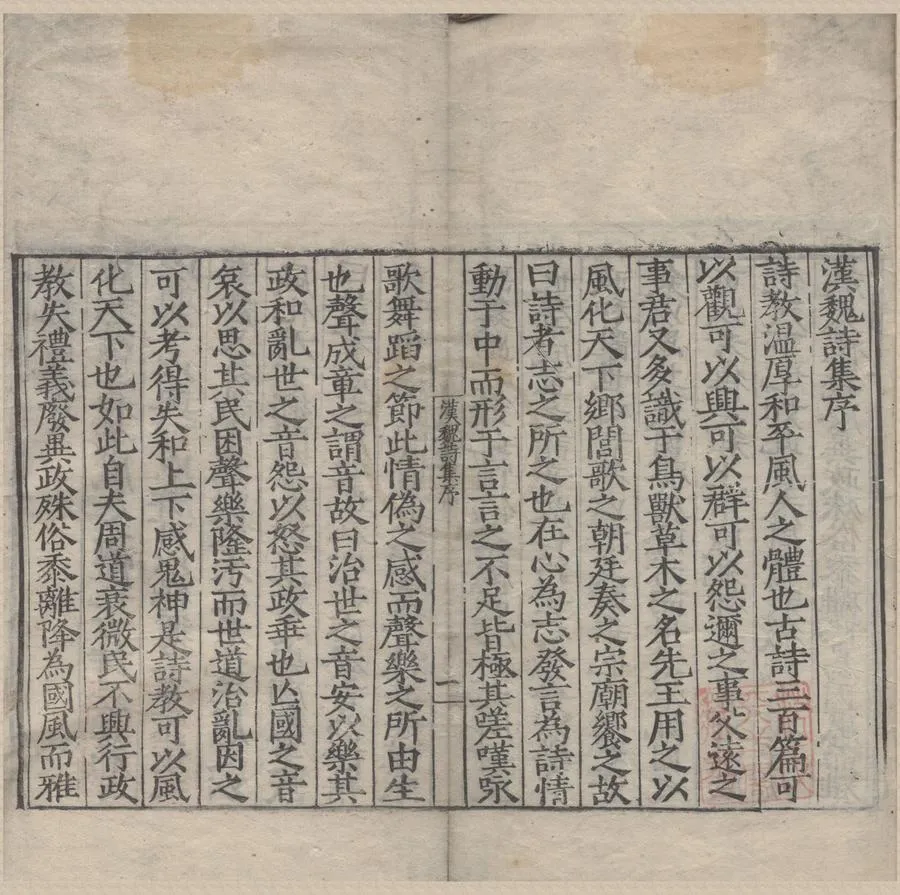 漢魏詩集序
詩教温厚和平風人之體也古詩三百篇可
以觀可以興可以群可以怨邇之事父遠之
事君又多識于鳥獸草木之名先王用之以
風化天下鄉閭歌之朝廷奏之宗廟饗之故
曰詩者志之所之也在心為志發言為詩情
動于中而形于言言之不足皆極其嗟嘆永
漢魏詩集序
一
歌舞蹈之節此情偽之感而聲樂之所由生
也聲成章之謂音故曰治世之音安以樂其
政和亂世之音怨以怒其政乖也亡國之音
哀以思其民困聲樂隆污而世道治亂因之
可以考得失和上下感鬼神是詩教可以風
化天下也如此自夫周道衰微民不興行政
教失禮義廢異政殊俗黍離降為國風而雅